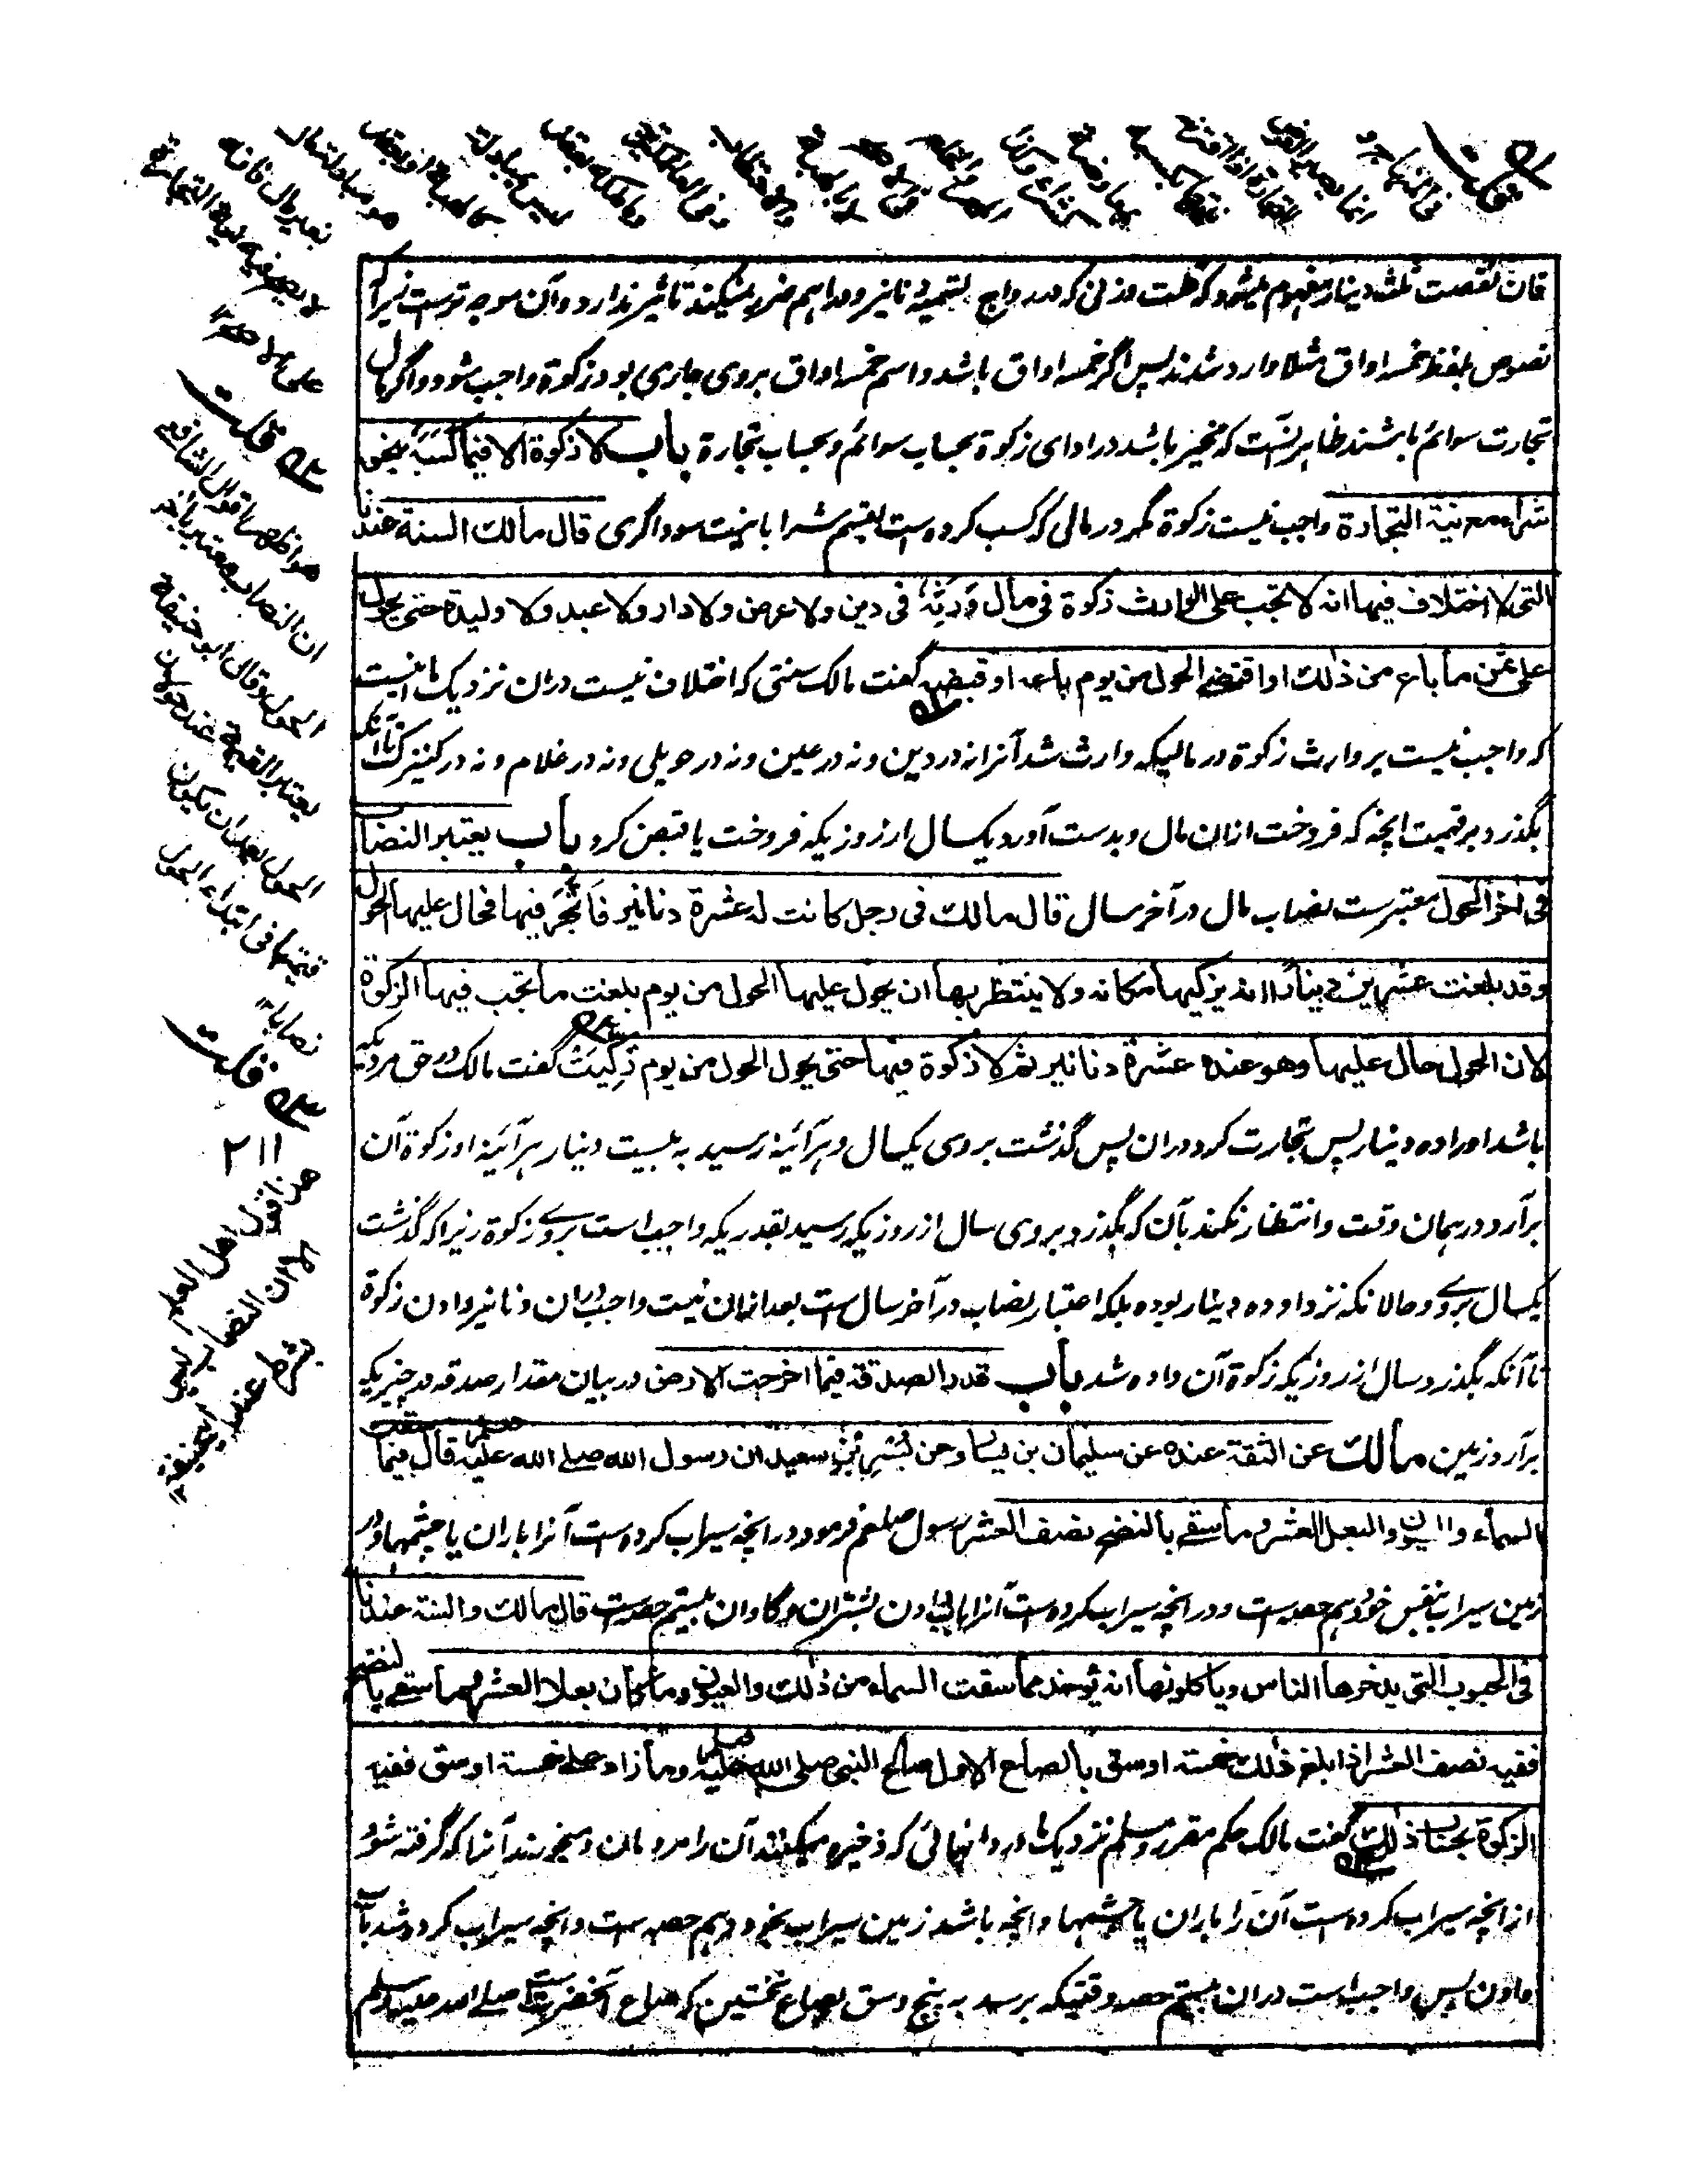 فان نقصت ثلث دینار مفهوم میشود که قلت وزنی که در رواج تسمیهٔ دنانیر و دراهم ضرر نمیکند تاثیر ندارد و آن موجه ترست زیرا که
نصوص بلفظ خمس اواق مثلا وارد شدند پس اگر خمس اواق باشد و اسم خمس اواق بروی جاری بود زکوة واجب شود و اگر مال
تجارت سوائم باشند ظاهر آنست که مخیر باشد در ادای زکوة بحساب سوائم و بحساب تجارة باب لا زکوة الا فیما کسبه بنحو
شراء مع نیة التجارة واجب نیست زکوة مگر در مالی که کسب کرده ست بقسم شرا با نیت سوداگری قال مالك السنة عندنا
التی لا اختلاف فیها انه لا تجب علی الوارث زکوة فی مال ورثه فی دین ولا عرض ولا دار ولا عبد ولا ولیدة حتی یحول
علی ثمن ما باع من ذلك او اقتضی الحول من یوم باعه او قبضه گفت مالک سنتی که اختلاف نیست دران نزدیک ما اینست
که واجب نیست بر وارث زکوة در مالیکه وارث شد آنرا نه در دین و نه در عین و نه در حویلی و نه در غلام و نه در کنیزک تا آنکه
بگذرد بر قیمت انچه که فروخت ازان مال و بدست آورد یکسال از روزیکه فروخت یا قبض کرد باب یعتبر النصاب
فی اخر الحول معتبرست نصاب مال در آخر سال قال مالك فی رجل کانت له عشرة دنانیر فاتجر فیها فحال علیها الحول
وقد بلغت عشرین دینارا انه یزکیها مکانه ولا ینتظر بها ان یحول علیها الحول من یوم بلغت ما تجب فیها الزکوة
لان الحول حال علیها وهو عنده عشرة دنانیر ثم لا زکوة فیها حتی یحول الحول من یوم زکیت گفت مالک در حق مردیکه
باشد او را ده دینار پس تجارت کرد دران پس گذشت بروی یکسال و هرآئینه رسید به بیست دینار هرآئینه او زکوة آن
برآرد در همان وقت و انتظار نکند بآن که بگذرد بروی سال از روزیکه رسید بقدریکه واجب است بروے زکوة زیرا که گذشت
یکسال بروے و حالانکه نزد او ده دینار بوده بلکه اعتبار نصاب در آخر سال ست بعد ازان نیست واجب دران دنانیر دادن زکوة
تا آنکه بگذرد سال از روزیکه زکوة آن داده شد باب قدر الصدقة فیما اخرجت الارض در بیان مقدار صدقه در چیزیکه
برآرد زمین مالك عن الثقة عنده عن سلیمان بن یسار وعن بسر بن سعید ان رسول الله صلی الله علیه وسلم قال فیما سقت
السماء والعیون والبعل العشر وما سقی بالنضح نصف العشر رسول صلعم فرمود در انچه سیراب کرده ست آنرا باران یا چشمها و در
زمین سیراب بنفس خود دهم حصه ست و در انچه سیراب کرده ست آنرا بآب دادن شتران و گاوان بیستم حصه ست قال مالك والسنة عندنا
فی الحبوب التی یدخرها الناس ویاکلونها انه یوخذ مما سقت السماء من ذلك والعیون وما کان بعلا العشر وما سقی بالنضح
ففیه نصف العشر اذا بلغ ذلك خمسة اوسق بالصاع الاول صاع النبی صلی الله علیه وسلم وما زاد علی خمسة اوسق ففیه
الزکوة بحساب ذلك گفت مالک حکم مقرر و مسلم نزدیک ما در دانهائی که ذخیره میکنند آن را مردمان و میخورند آنرا که گرفته شود
از انچه سیراب کرده ست آن را باران یا چشمها و انچه باشد زمین سیراب بخود دهم حصه ست و انچه سیراب کرده شد بآب
دادن پس واجب است دران بیستم حصه وقتیکه برسد به پنج وسق بصاع نخستین که صاع آنحضرت ست صلی الله علیه وسلم
قلت
هو مبادلة مال
بغیر مال فانه
لا یصیر فیه نیة التجارة
قلت
هو اظهر اقوال الشافعی
ان النصاب معتبر باخر
الحول وقال ابو حنیفة
یعتبر القیمة عند حولان
الحول بعد ان یکون
قیمتها فی ابتداء الحول
نصابا
قلت
هذا قول اهل العلم
الا ان النصاب لیس
بشرط عند ابی حنیفة